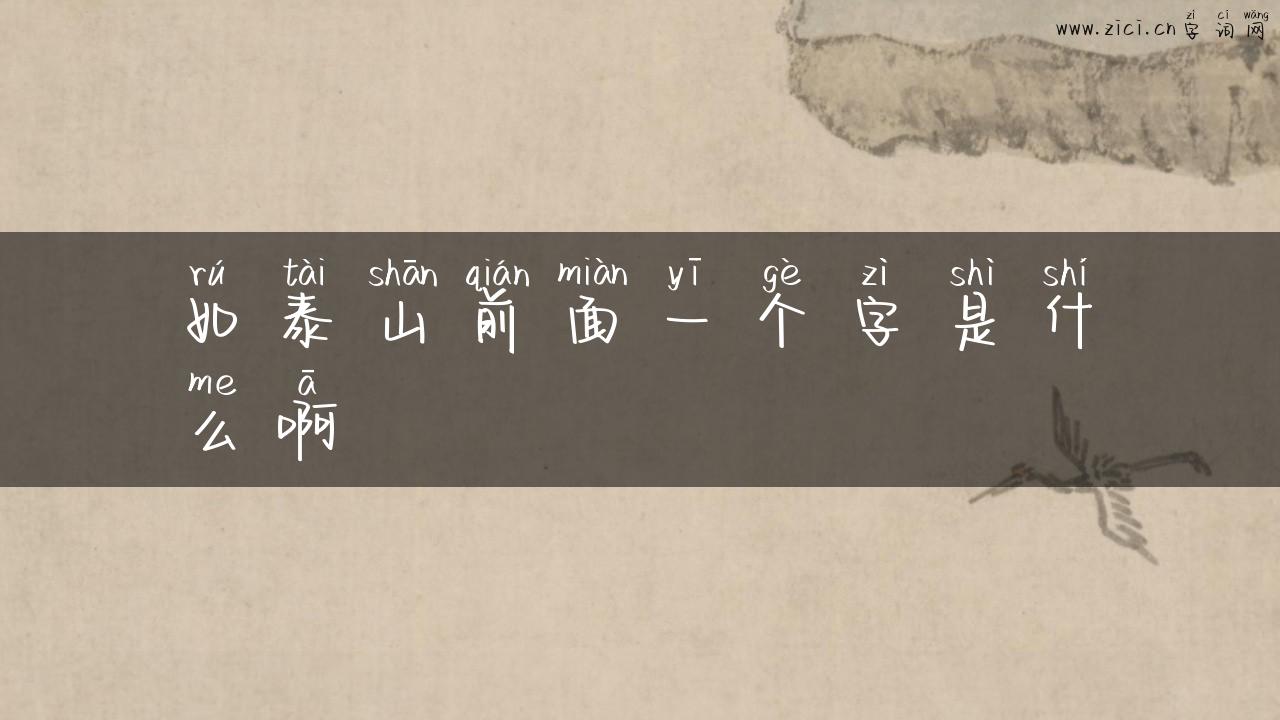 zì cí wǎng
www.zici.cn 字词网
rú tài shān qián miàn yī gè zì shì shí
如泰山前面一个字是什
me ā
么啊